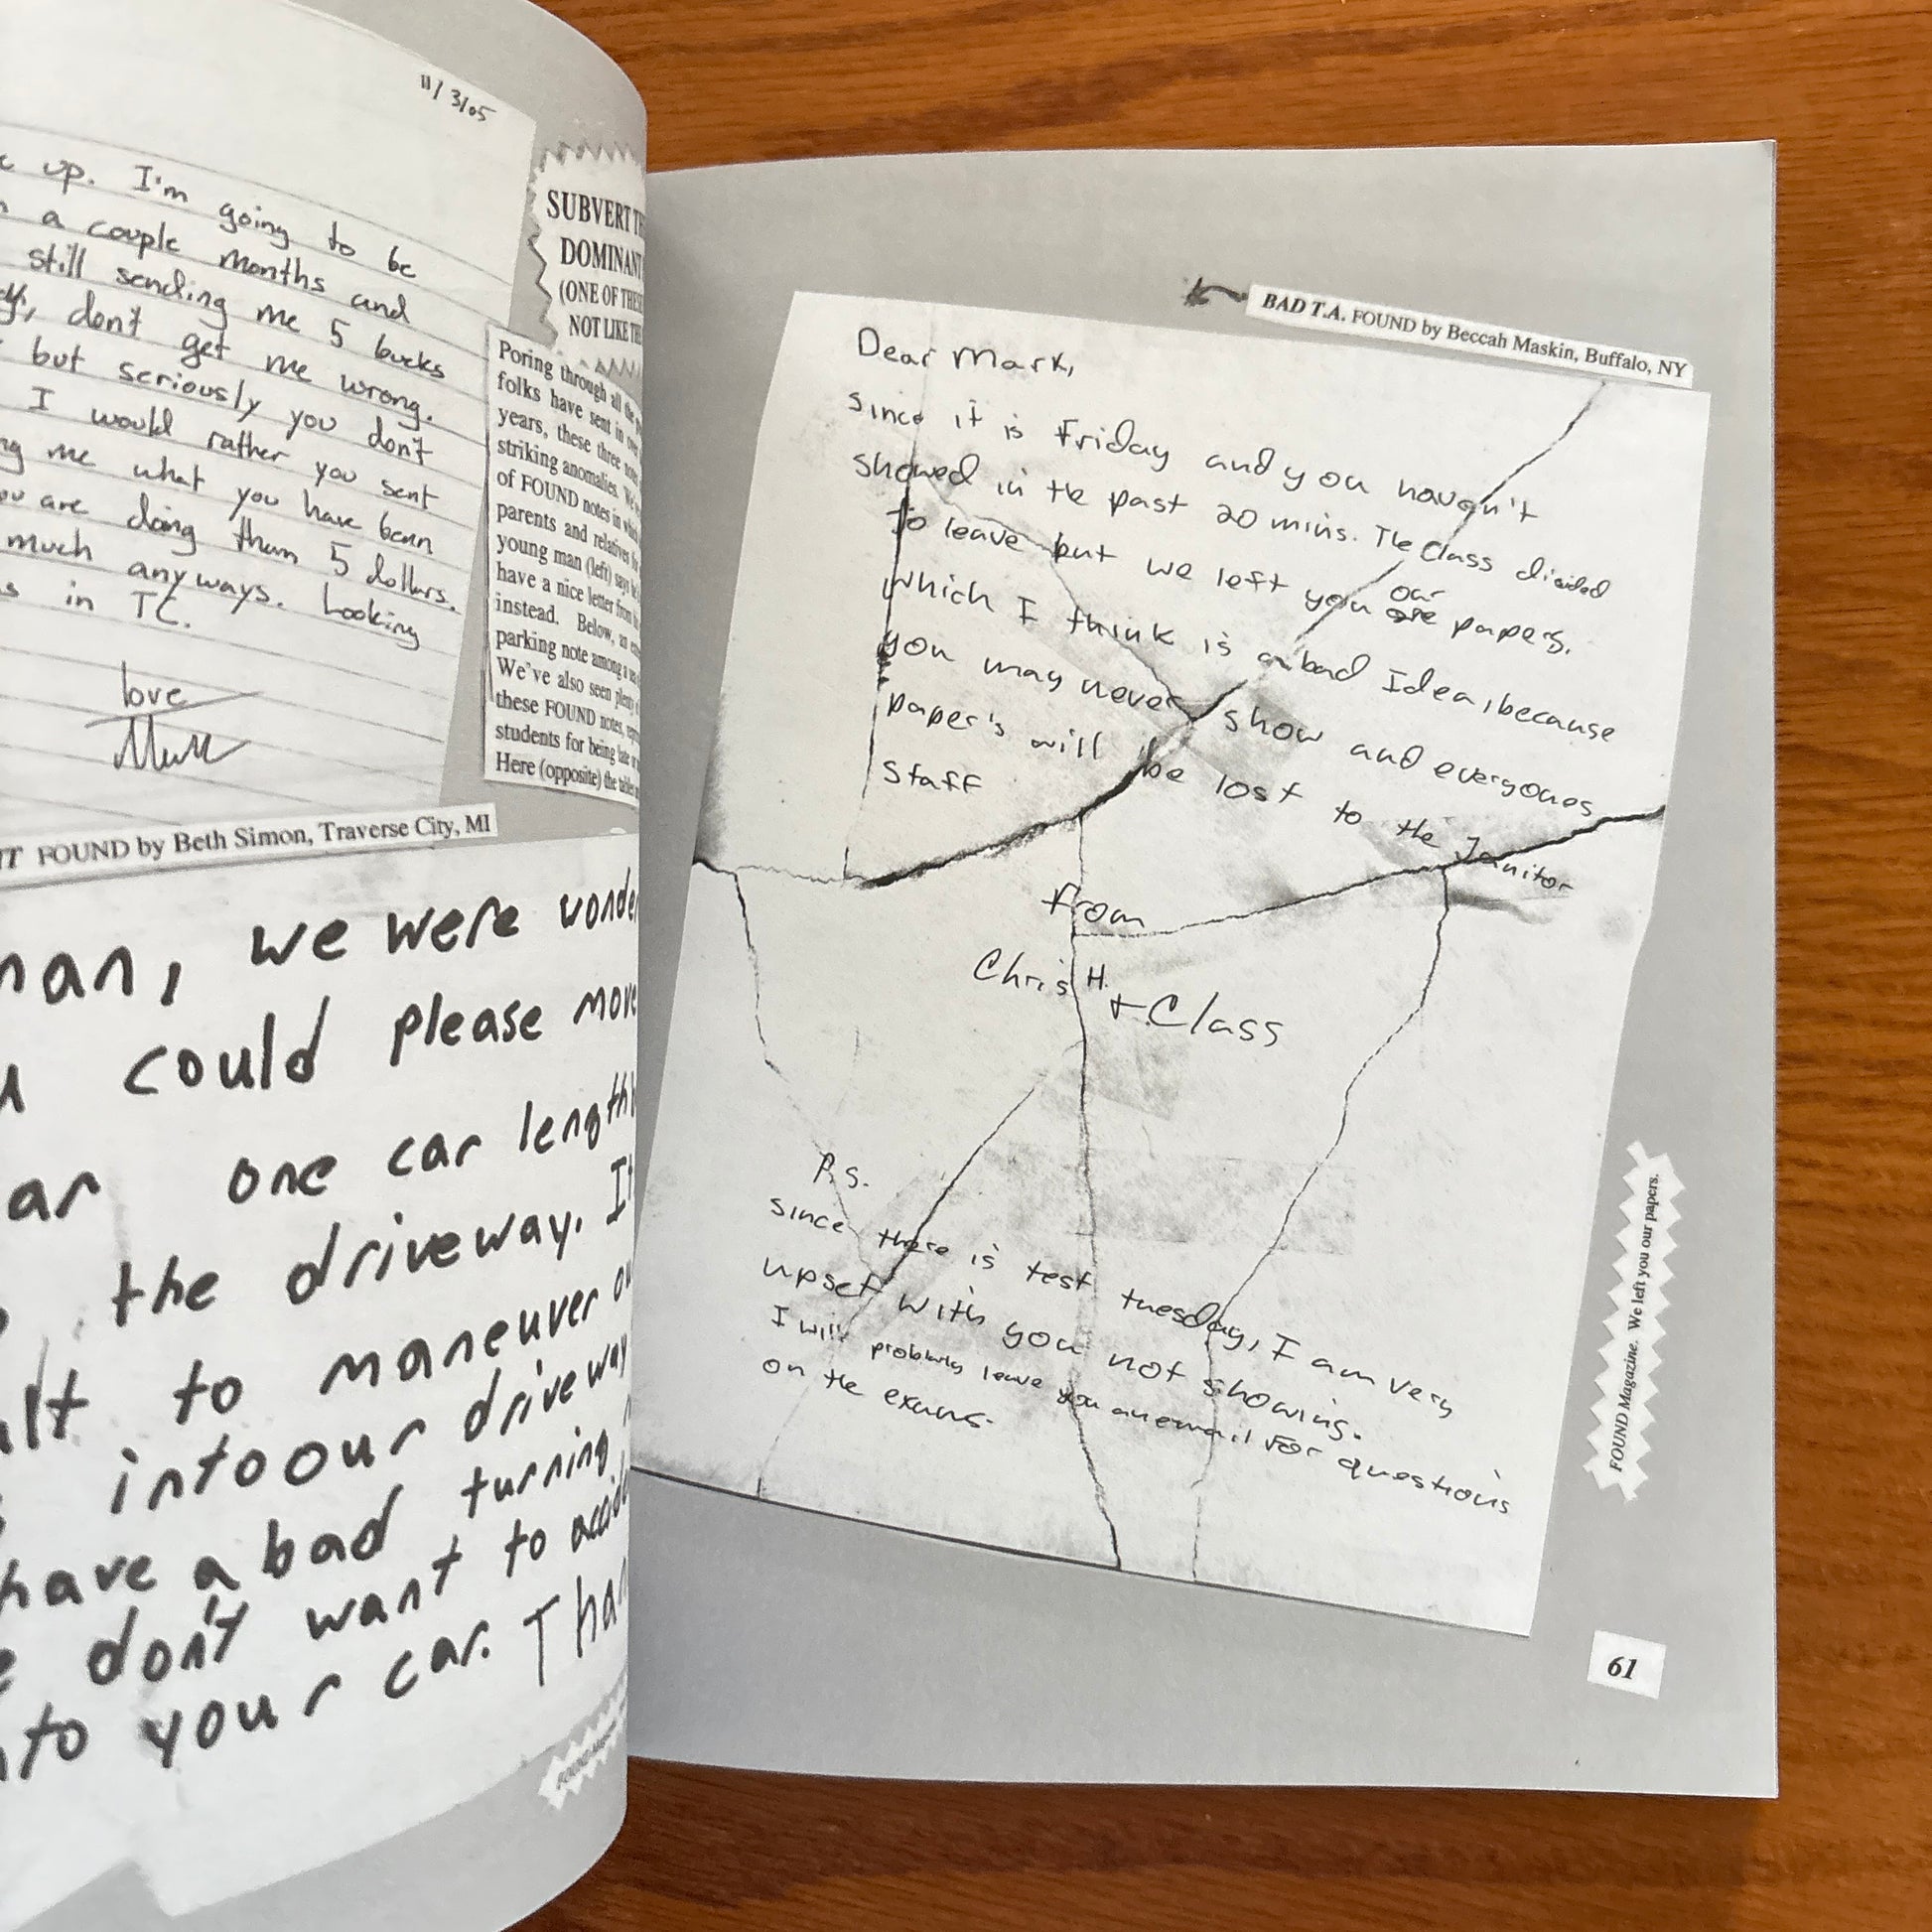 11/3/05
up. I'm going to be
a couple months and
still sending me 5 bucks
don't get me wrong.
but seriously you don't
I would rather you sent
me what you have been
are doing than 5 dollars.
much anyways. Looking
in TC.
love
SUBVERT
DOMINANT
(ONE OF THESE
NOT LIKE THE
Poring through all the
folks have sent in over
years, these three
striking anomalies.
of FOUND notes in
parents and relatives
young man (left) says
have a nice letter from
instead. Below, an
parking note among a
We've also seen plenty
these FOUND notes,
students for being late
Here (opposite) the tables
FOUND by Beth Simon, Traverse City, MI
man, we were
could please move
one car length
the driveway. It
to maneuver
into our driveway
have a bad turning
don't want to
to your car.
BAD T.A. FOUND by Beccah Maskin, Buffalo, NY
Dear Mark,
since it is Friday and you haven't
showed in the past 20 mins. The Class dicided
to leave but we left you our papers.
which I think is a bad Idea, because
you may never show and everyones
paper's will be lost to the Janitor
staff
From
Chris H.
+ Class
P.S.
since there is test tuesday, I am very
upset with you not showing.
I will probably leave you an email for questions
on the exams.
FOUND Magazine. We left you our papers.
61